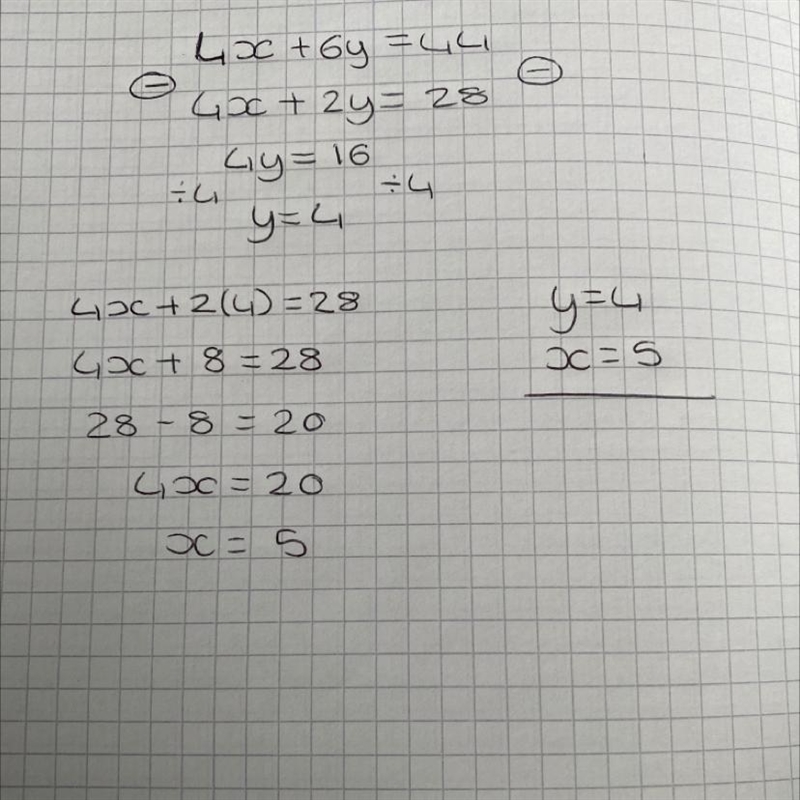 4x + 6y = 44
⊖ ⊖
4x + 2y = 28
4y = 16
÷4 ÷4
y = 4
4x + 2(4) = 28
4x + 8 = 28
28 - 8 = 20
4x = 20
x = 5
y = 4
x = 5